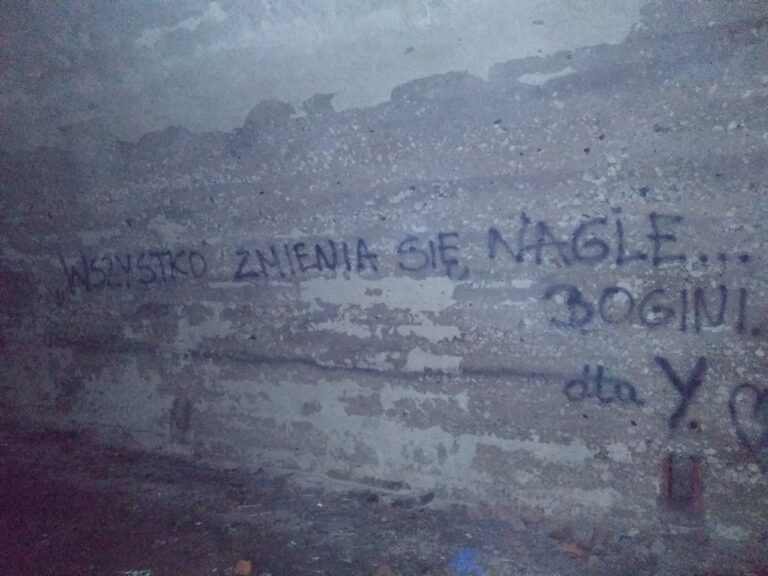 „WSZYSTKO ZMIENIA SIĘ NAGLE...
BOGINI.
dla Y.